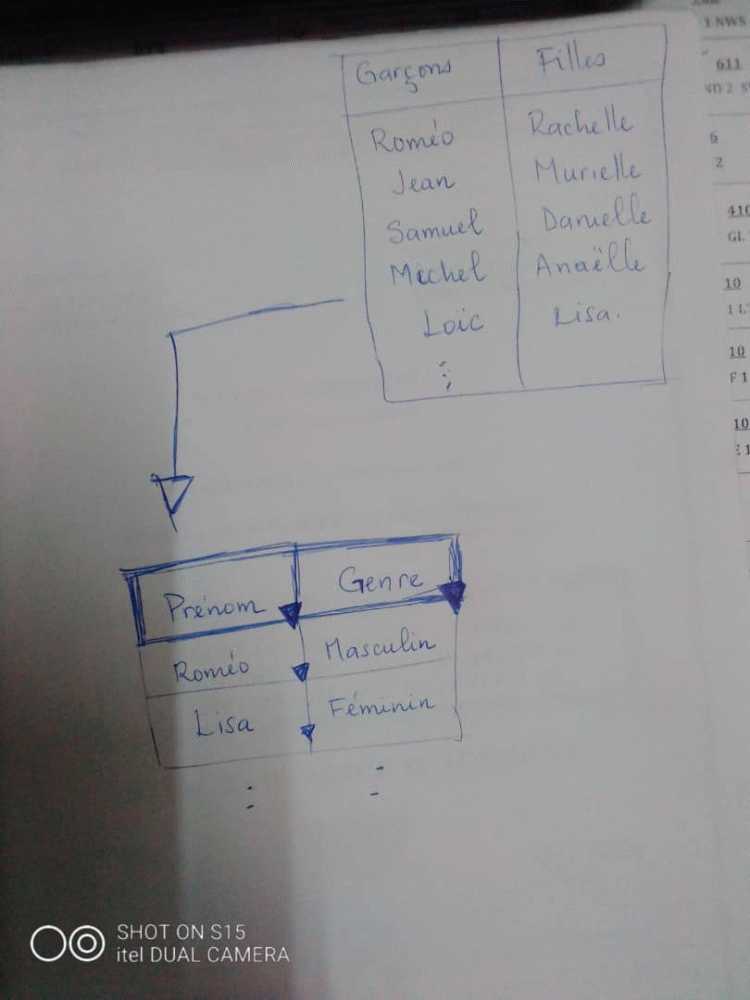 Garçons Filles
Roméo Rachelle
Jean Murielle
Samuel Danielle
Michel Anaëlle
Loic Lisa.
Prénom Genre
Roméo Masculin
Lisa Féminin
1 NWS
611
6
2
410
GL
10
10
F 1
10
E 1
SHOT ON S15
itel DUAL CAMERA